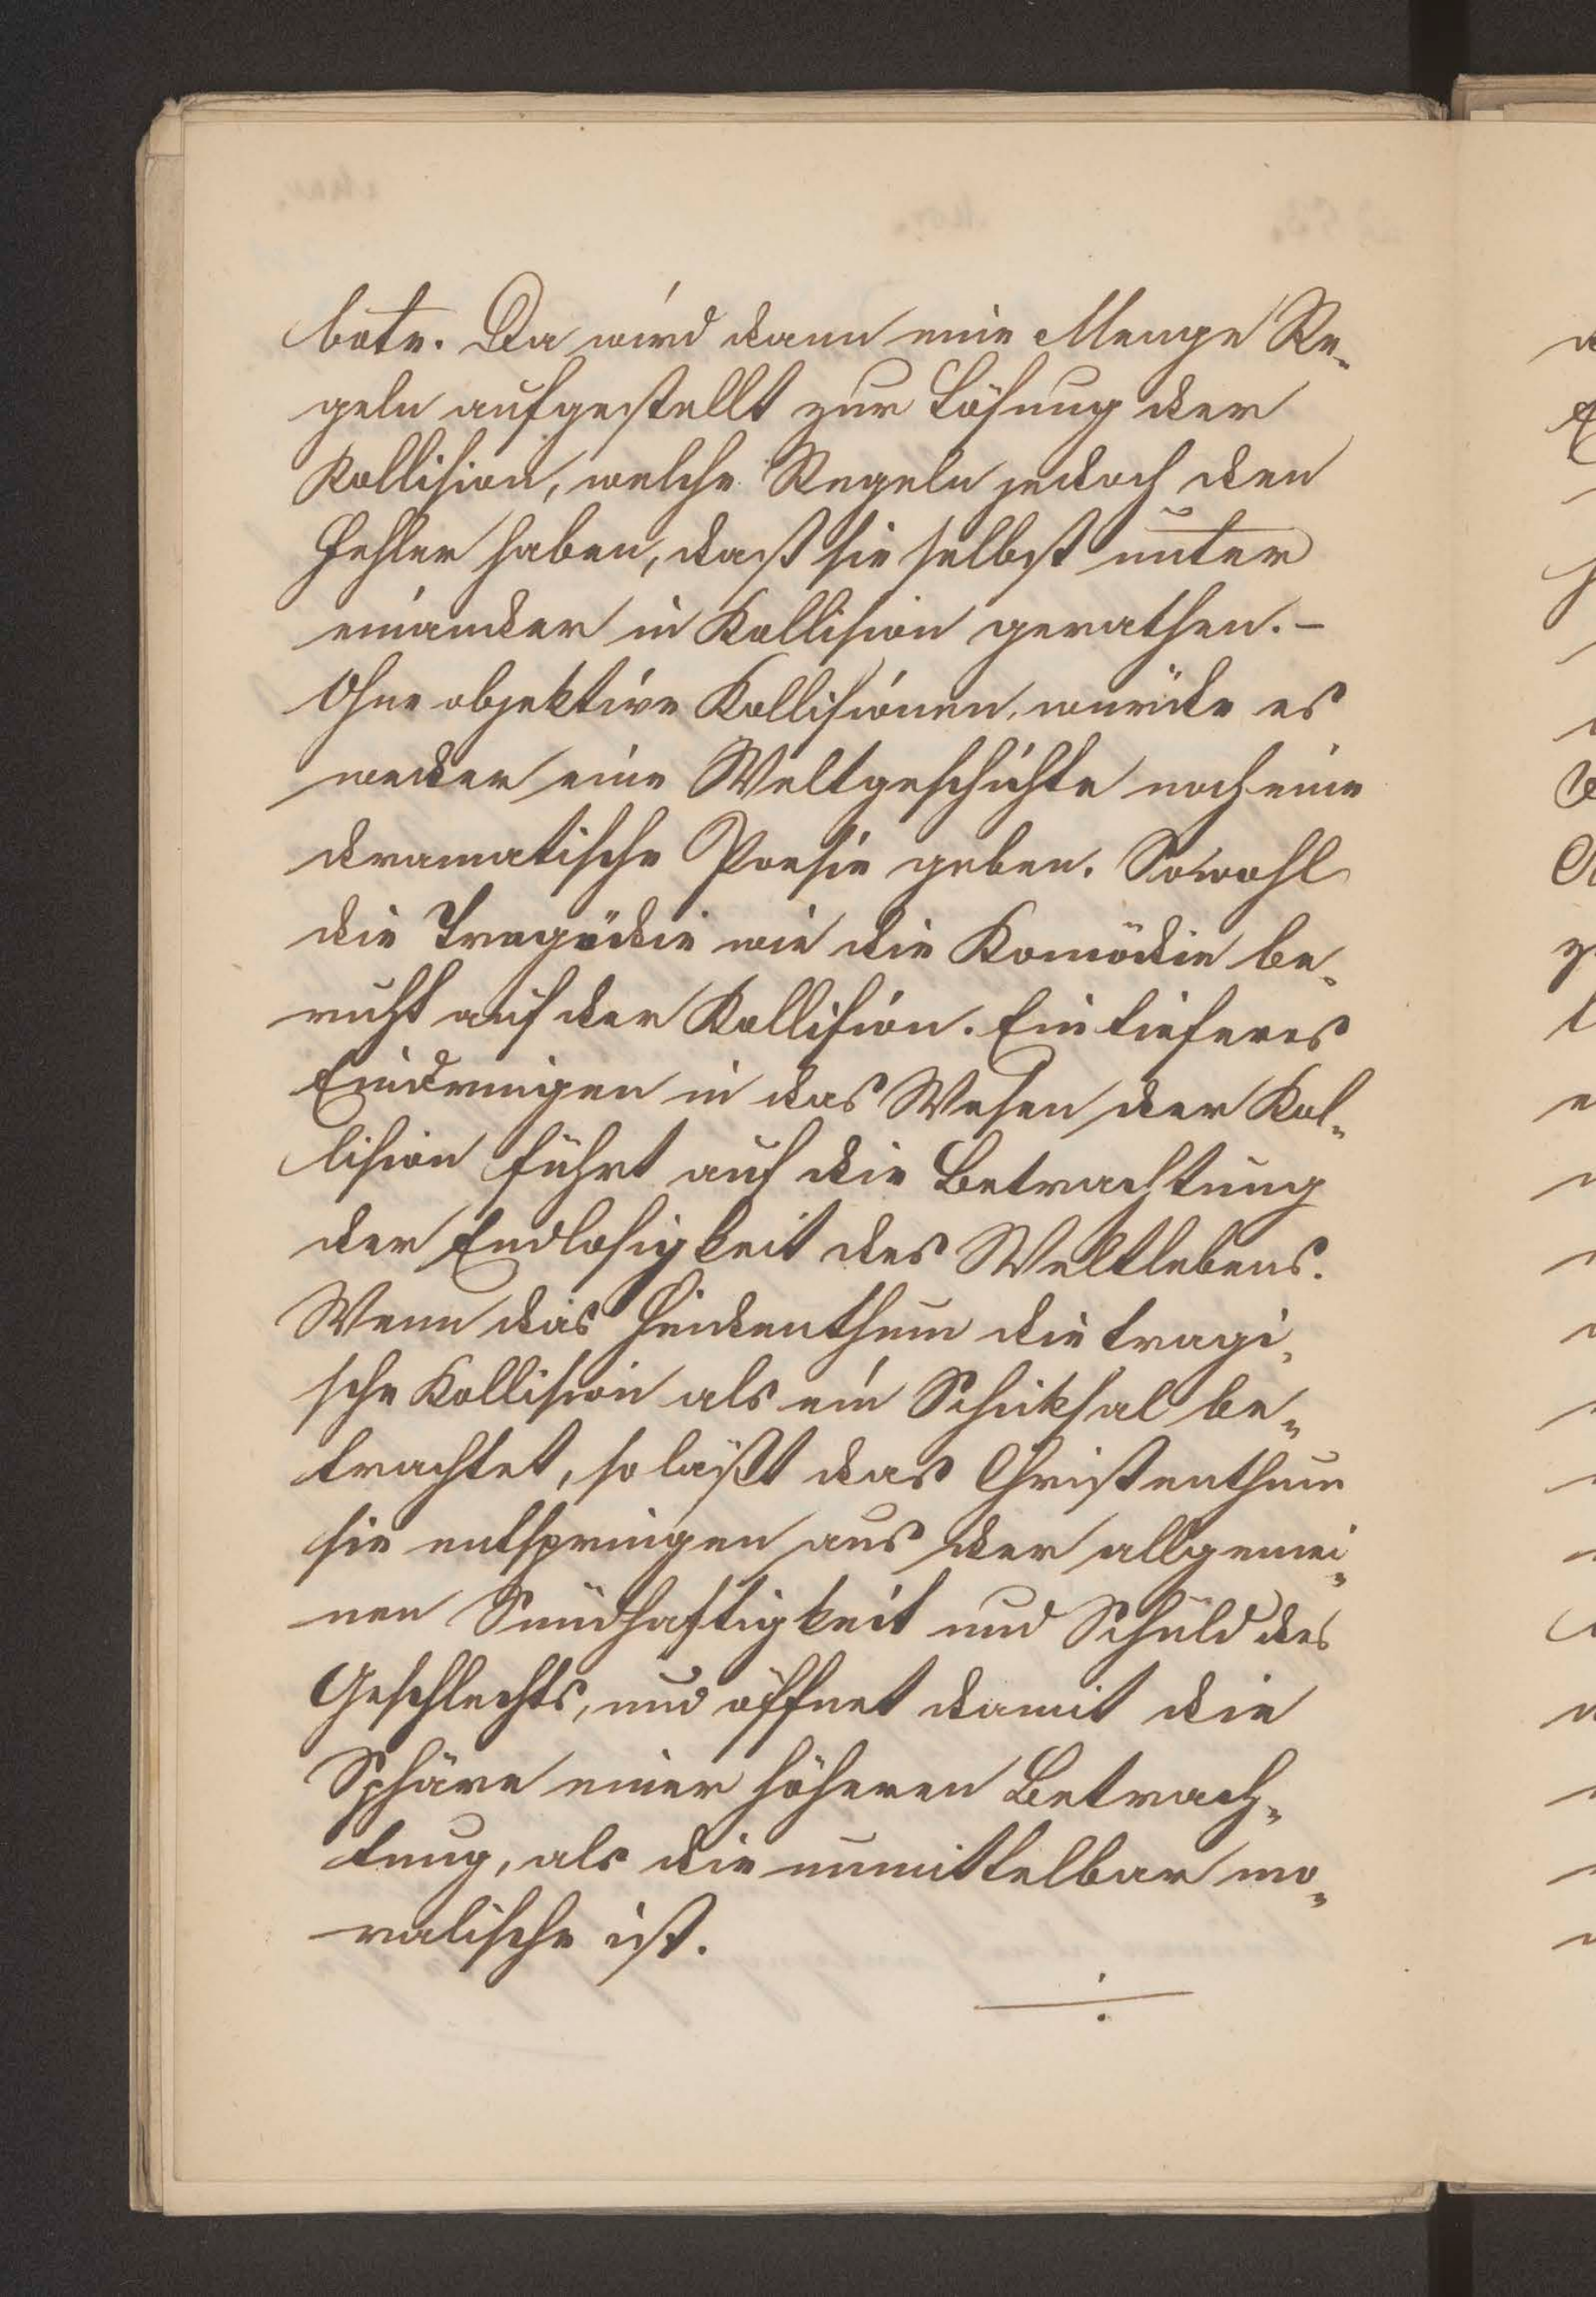 bote. Da wird dann eine Menge Re-
geln aufgestellt zur Lösung der
Kollision, welche Regeln jedoch den
Fehler haben, dass sie selbst unter
einander in Kollision gerathen. –
Ohne objektive Kollisionen, würde es
weder eine Weltgeschichte noch eine
dramatische Poesie geben. Sowohl
die Tragödie wie die Komödie be-
ruht auf der Kollision. Ein tieferes
Eindringen in das Wesen der Kol-
lision führt auf die Betrachtung
der Endlosigkeit des Weltlebens.
Wenn das Heidenthum die tragi-
sche Kollision als ein Schiksal be-
trachtet, so läßt das Christenthum
sie entspringen aus der allgemei-
nen Sündhaftigkeit und Schuld des
Geschlechts, und öffnet damit die
Sphäre einer höheren Betrach-
tung, als die unmittelbar mo-
ralische ist.